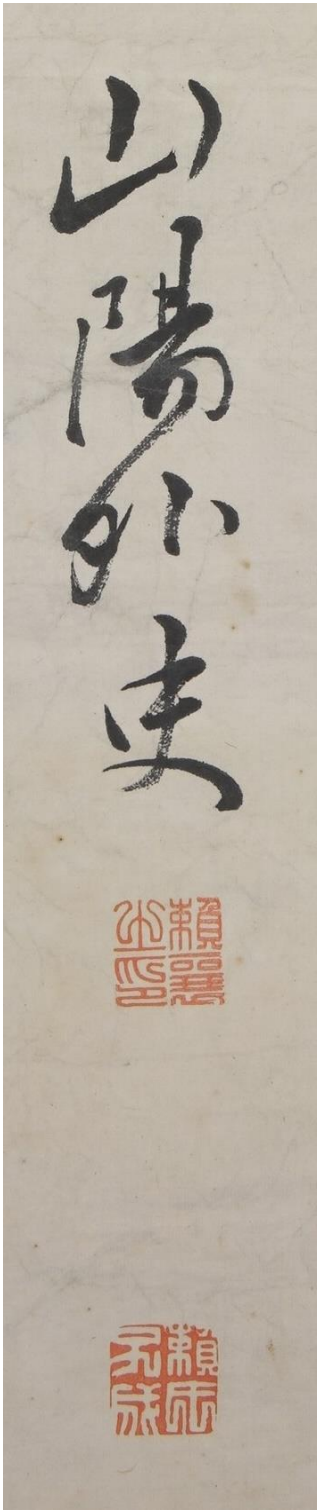 山陽外史
賴襄之印
賴氏子成